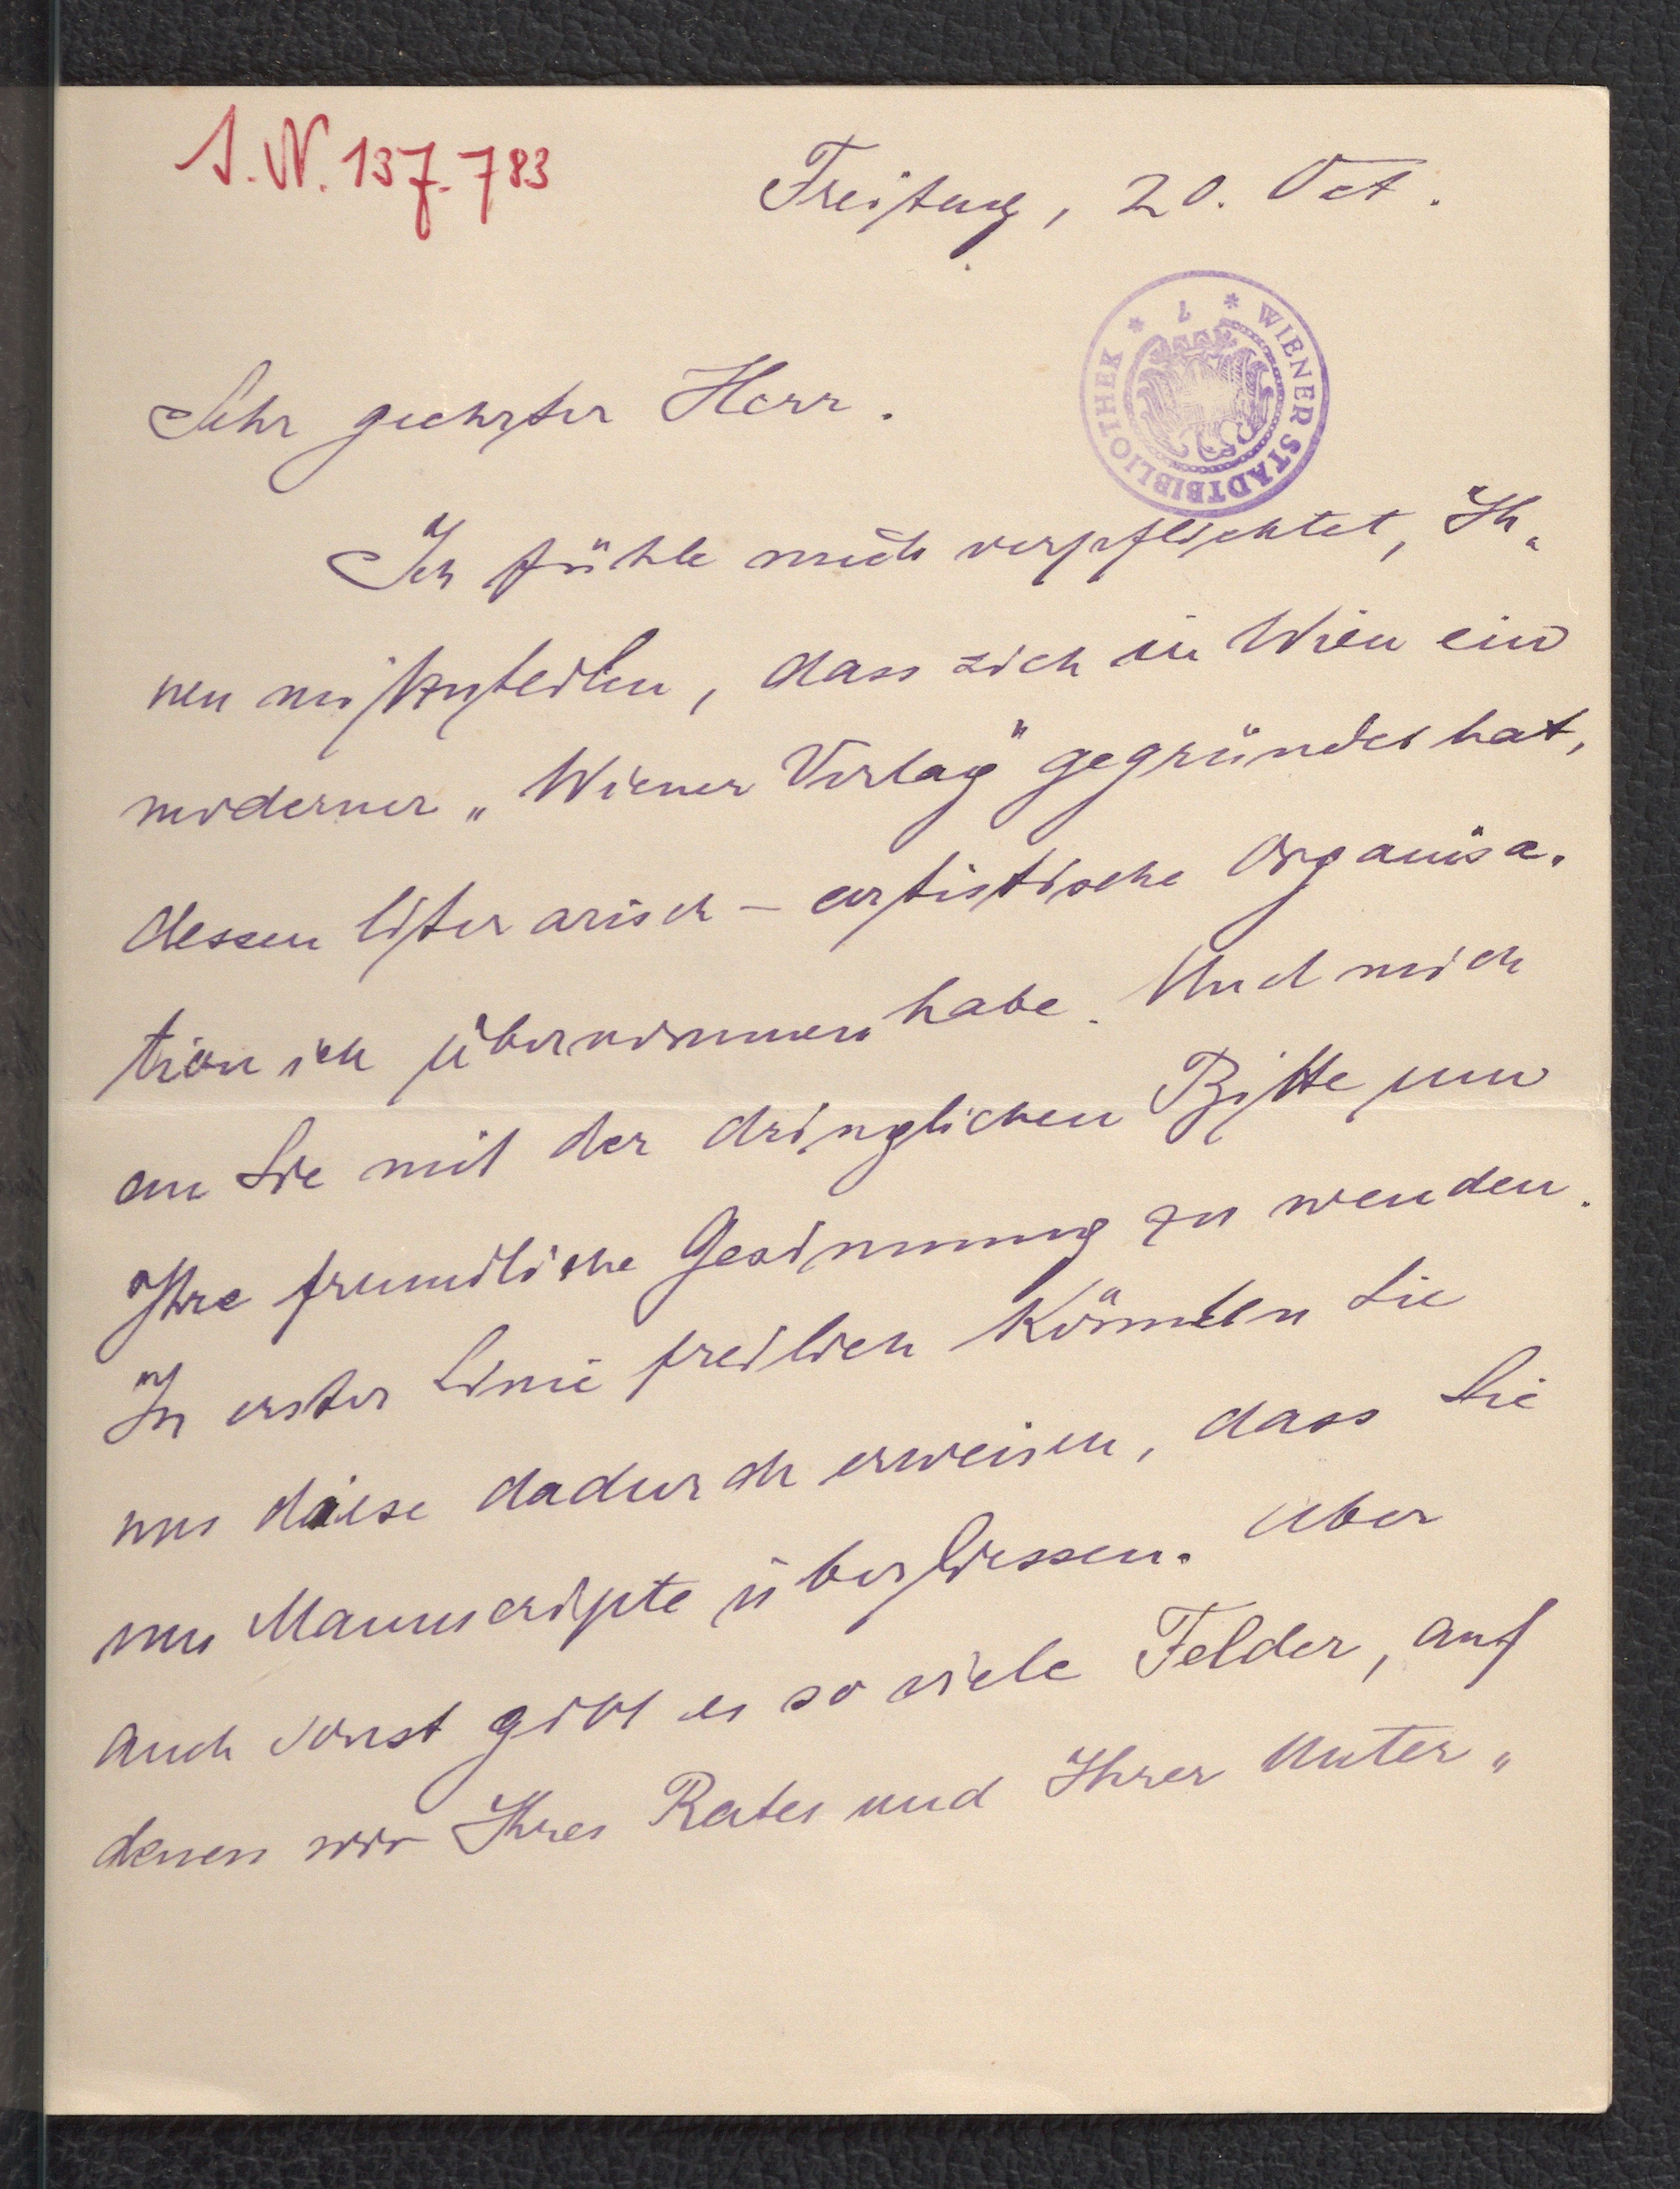 I.N. 137.783
Freitag, 20. Oct.
* WIENER STADTBIBLIOTHEK *
Sehr geehrter Herr.
Ich fühle mich verpflichtet, Ih-
nen mitzuteilen, dass sich in Wien ein
moderner „Wiener Verlag" gegründet hat,
dessen literarisch-artistische Organisa-
tion ich übernommen habe. Und mich
an Sie mit der dringlichen Bitte um
Ihre freundliche Gesinnung zu wenden.
In erster Linie freilich könnten Sie
uns diese dadurch erweisen, dass Sie
uns Manuscripte überliessen. Aber
auch sonst gibt es so viele Felder, auf
denen wir Ihres Rates und Ihrer Unter-